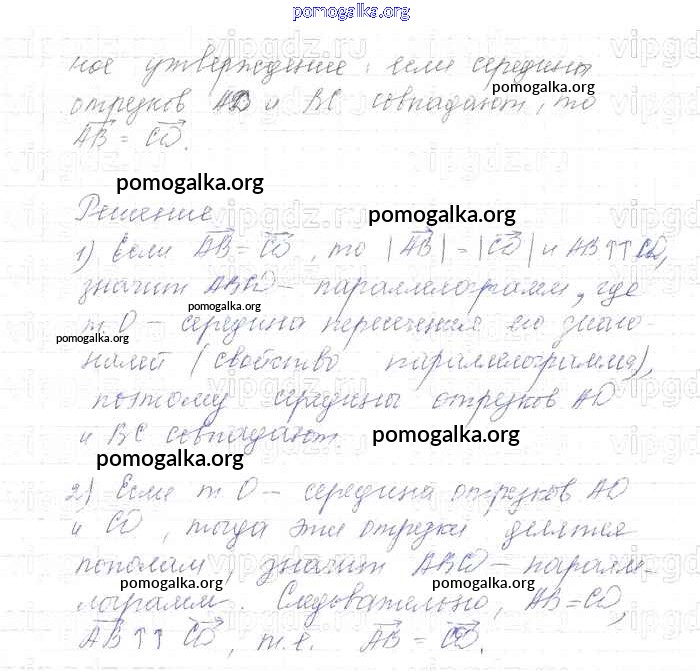 pomogalka.org
ное утверждение: если середины
pomogalka.org
отрезков AD и BC совпадают, то
AB = CD.
pomogalka.org
Решение
pomogalka.org
1) Если AB = CD, то |AB| = |CD| и AB↑↑CD,
значит ABCD - параллелограмм, где
pomogalka.org
т. O - середина пересечения его диаго-
pomogalka.org
налей (свойство параллелограмма),
поэтому середины отрезков AD
и BC совпадают.
pomogalka.org
pomogalka.org
2) Если т O - середина отрезков AD
и CD, тогда эти отрезки делятся
пополам, значит ABCD - паралле-
pomogalka.org
pomogalka.org
лограмм. Следовательно, AB = CD,
AB ↑↑ CD, т.е. AB = CD.
pomogalka.org